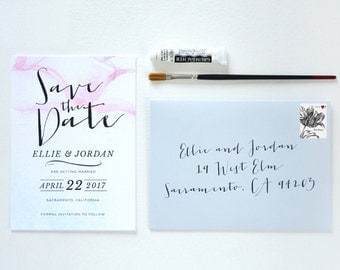 Save
the
Date
ELLIE & JORDAN
ARE GETTING MARRIED
APRIL 22 2017
SACRAMENTO, CALIFORNIA
FORMAL INVITATION TO FOLLOW
Ellie and Jordan
19 West Elm
Sacramento, CA 94203